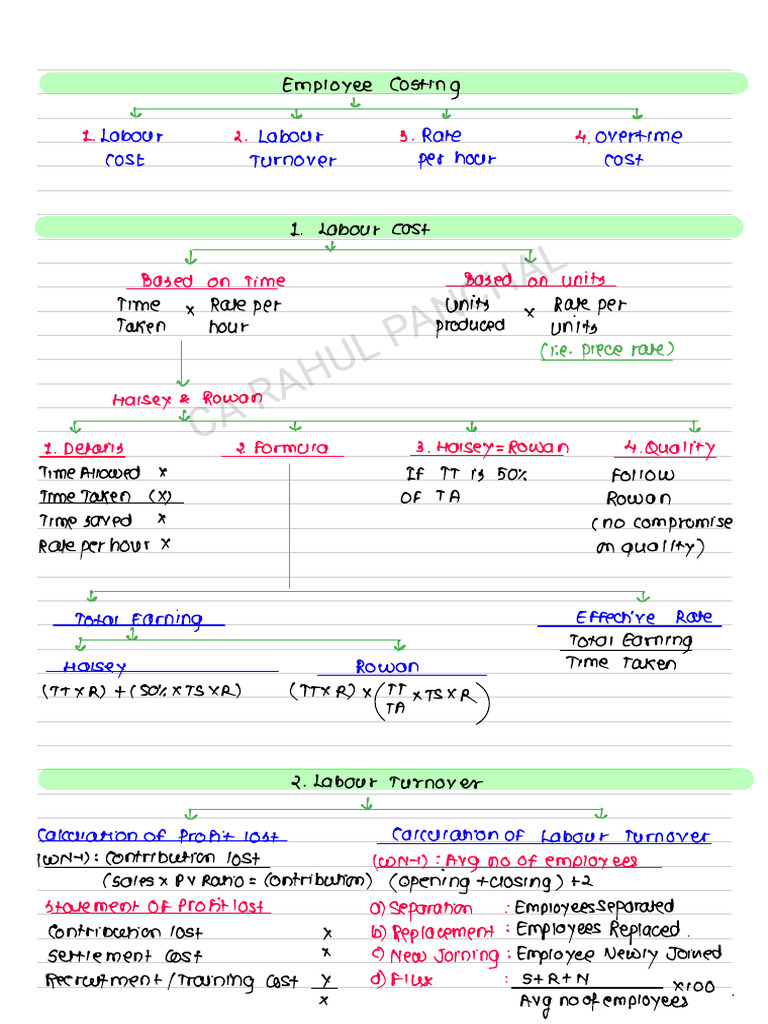 Employee Costing
1. Labour Cost
2. Labour Turnover
3. Rate per hour
4. Overtime Cost
1. Labour Cost
Based on Time
Time Taken x Rate per hour
Based on Units
Units produced x Rate per units
(i.e. piece rate)
Halsey & Rowan
1. Details
Time Allowed x
Time Taken (x)
Time saved x
Rate per hour x
2. Formula
3. Halsey = Rowan
If TT is 50%
OF TA
4. Quality
Follow
Rowan
(no compromise
on quality)
Total Earning
Effective Rate
Total Earning
Time Taken
Halsey
(TT x R) + (50% x TS x R)
Rowan
(TT x R) x (TT/TA x TS x R)
2. Labour Turnover
Calculation of Profit lost
(WN-1) : Contribution lost
(Sales x PV Ratio = Contribution)
Statement of Profit lost
Contribution lost x
Settlement Cost x
Recruitment / Training cost x
x
Calculation of Labour Turnover
(WN-1) : Avg no of employees
(opening + closing) ÷ 2
a) Separation : Employees Separated
b) Replacement : Employees Replaced.
c) New Joining : Employee Newly Joined
d) Flux : S+R+N / Avg no of employees x 100
CA RAHUL PANCHAL